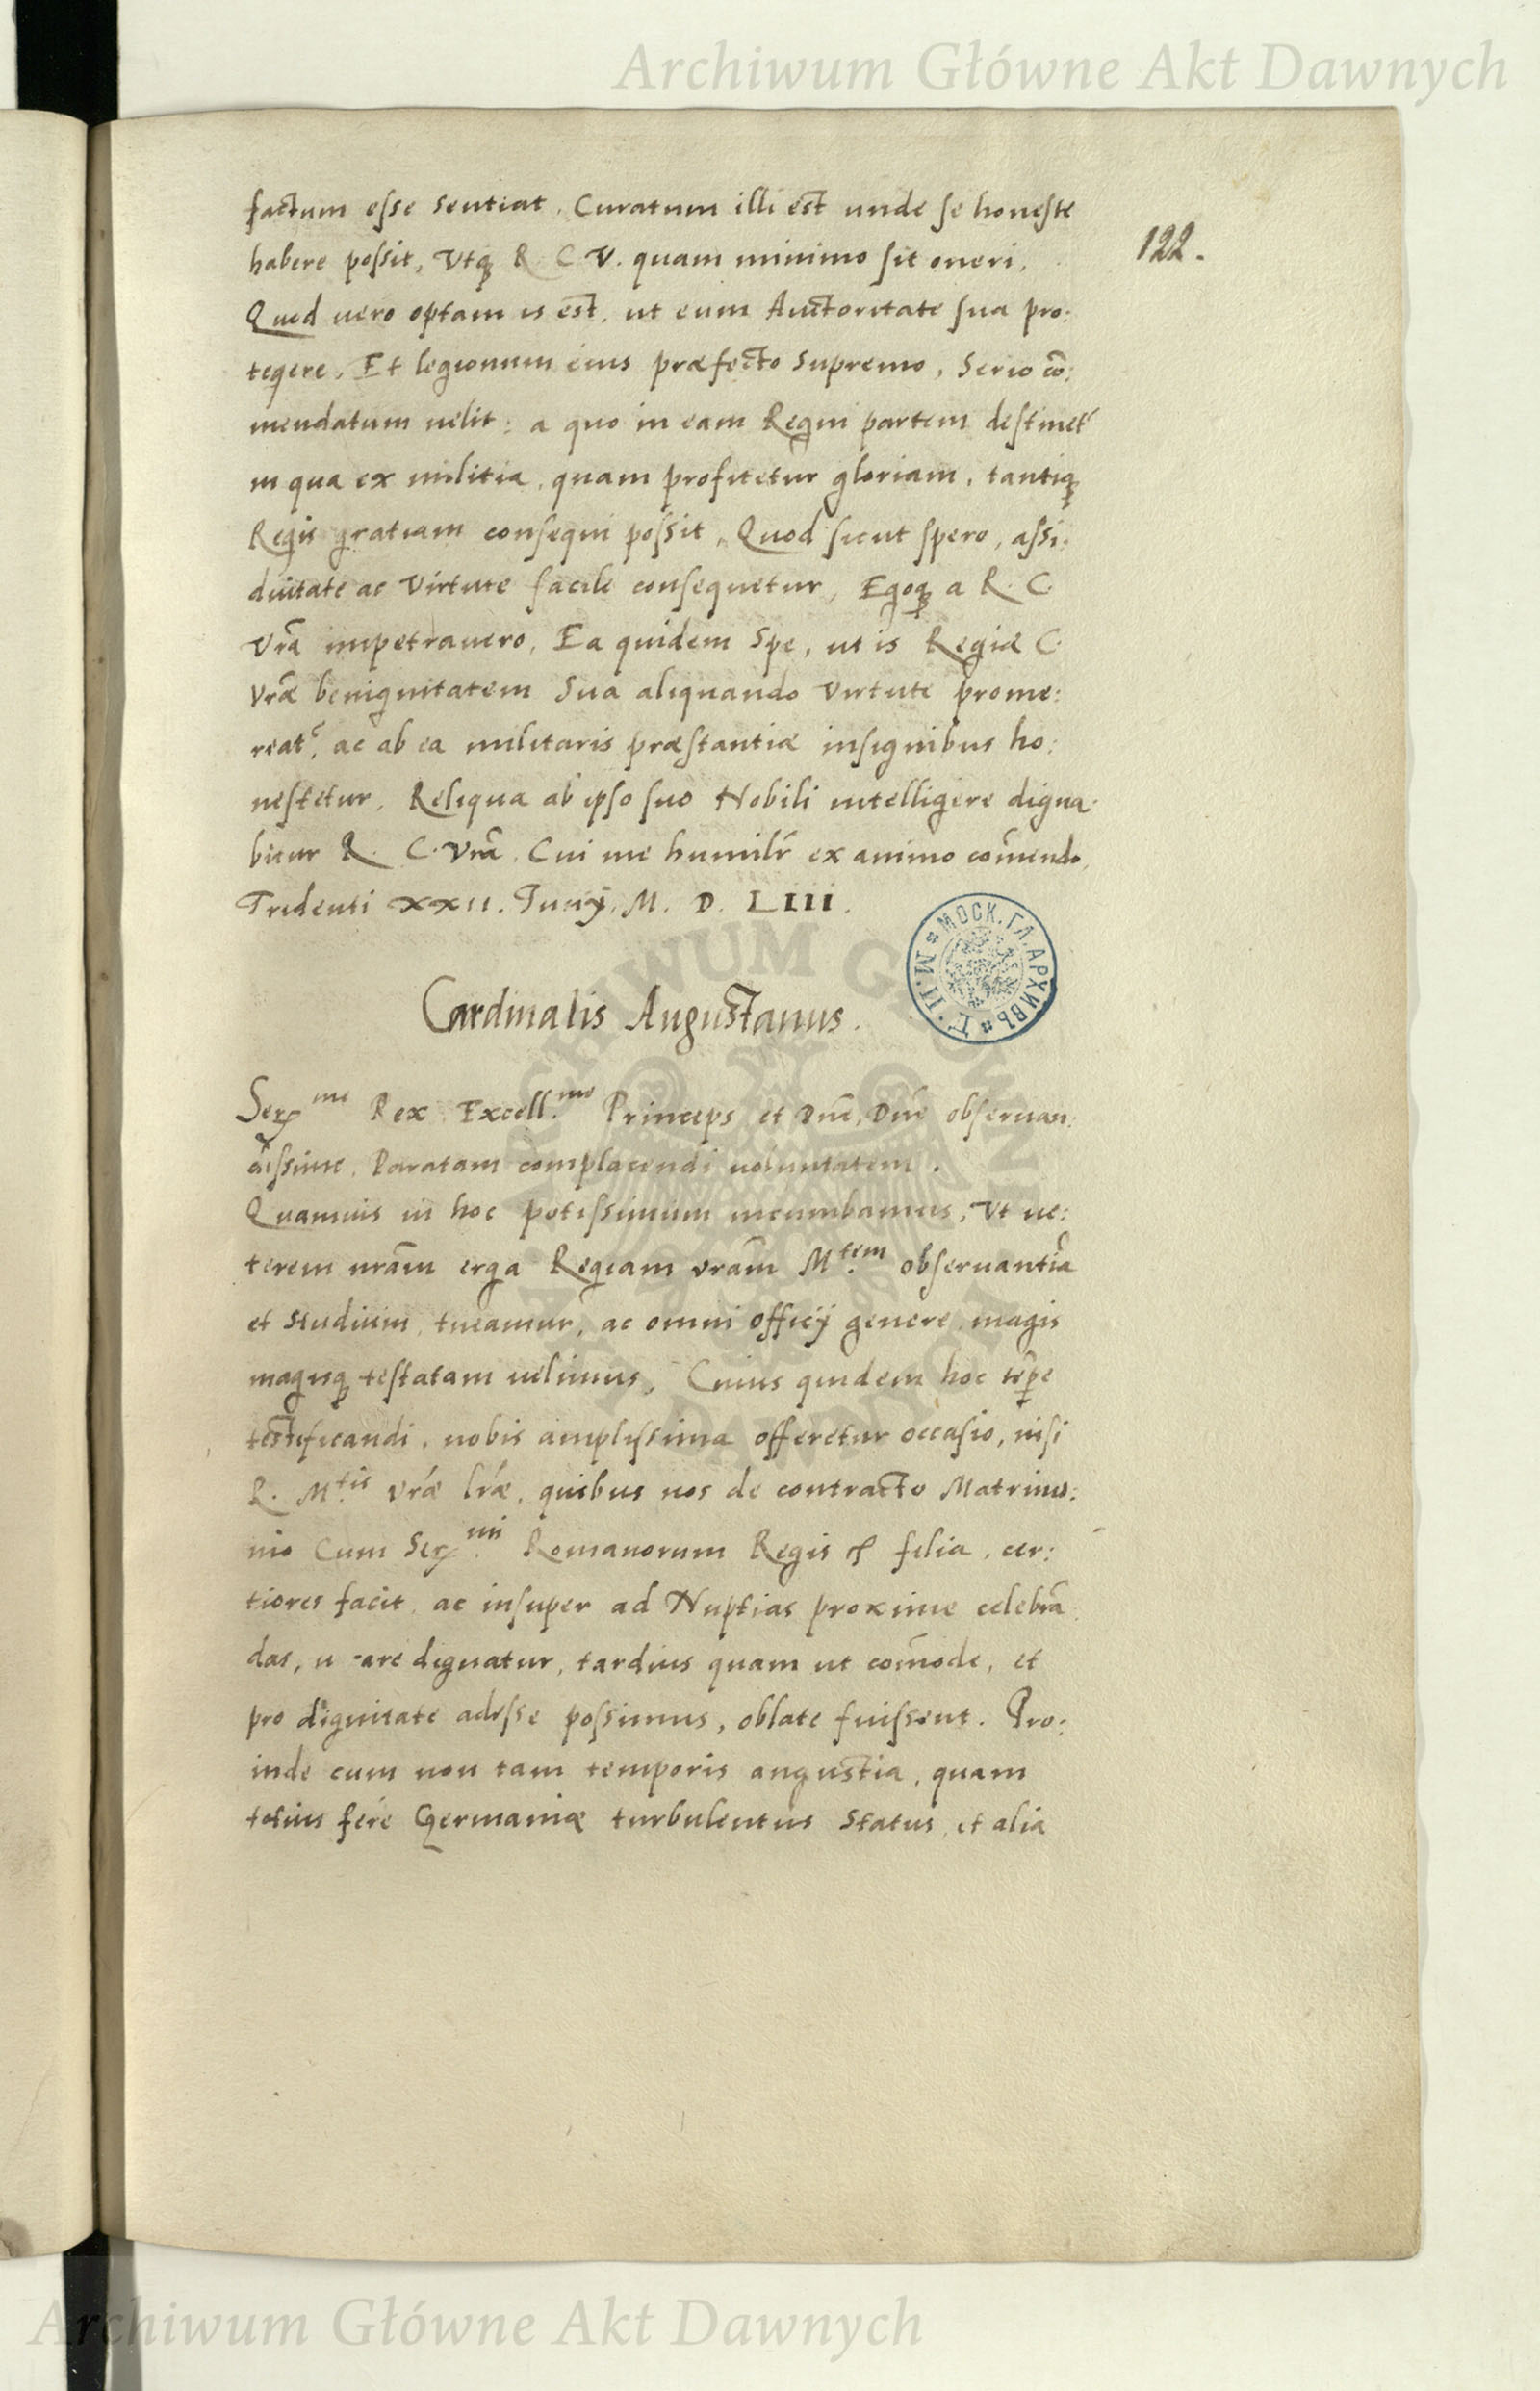 Archiwum Główne Akt Dawnych
122.
factum esse sentiat. Curatum illi est unde se honeste
habere possit, Utq₃ R C V. quam minimo sit oneri.
Quod uero optam is est, ut eum Auctoritate sua pro:
tegere, Et legionum eius præfecto supremo, Serio cō:
mendatum uelit: a quo in eam Regni partem destinet̃
in qua ex militia, quam profitetur gloriam, tantiq₃
Regis gratiam consequi possit, Quod sicut spero, assi:
duitate ac Virtute facile consequetur, Egoq₃ a R. C.
Vrã impetrauero, Ea quidem Spe, ut is Regiæ C.
Vræ̃ benignitatem Sua aliquando Virtute prome:
reat̃, ac ab ea militaris præstantiæ insignibus ho:
nestetur. Reliqua ab ipso suo Nobili intelligere digna:
bitur R. C. Vrã. Cui me humilr̃ ex animo com̃endo.
Tridenti XXII. Junij. M. D. LIII.
Cardinalis Augustanus.
МОСК. ГЛ. АРХИВЪ
Ser^me Rex Excell.^me Princeps et Dñe, Dñe obseruan:
dissime. Paratam complacendi uoluntatem.
Quamuis in hoc potissimum incumbamus, Ut ue:
terem nrãm erga Regiam vrãm M.^tem obseruantiã
et studium, tueamur, ac omni officij genere magis
magisq₃ testatam uelimus, Cuius quidem hoc tẽpe
testificandi, nobis amplissima offeretur occasio, nisi
R. M.^tis Vræ̃ lræ̃, quibus nos de contracto Matrimo:
nio Cum Ser.^mi Romanorum Regis &c filia, cer:
tiores facit, ac insuper ad Nuptias proxime celebrã
das, u are dignatur, tardius quam ut com̃ode, et
pro dignitate adesse possimus, oblate fuissent. Pro:
inde cum non tam temporis angustia, quam
totius fere Germaniæ turbulentus status, et alia
Archiwum Główne Akt Dawnych